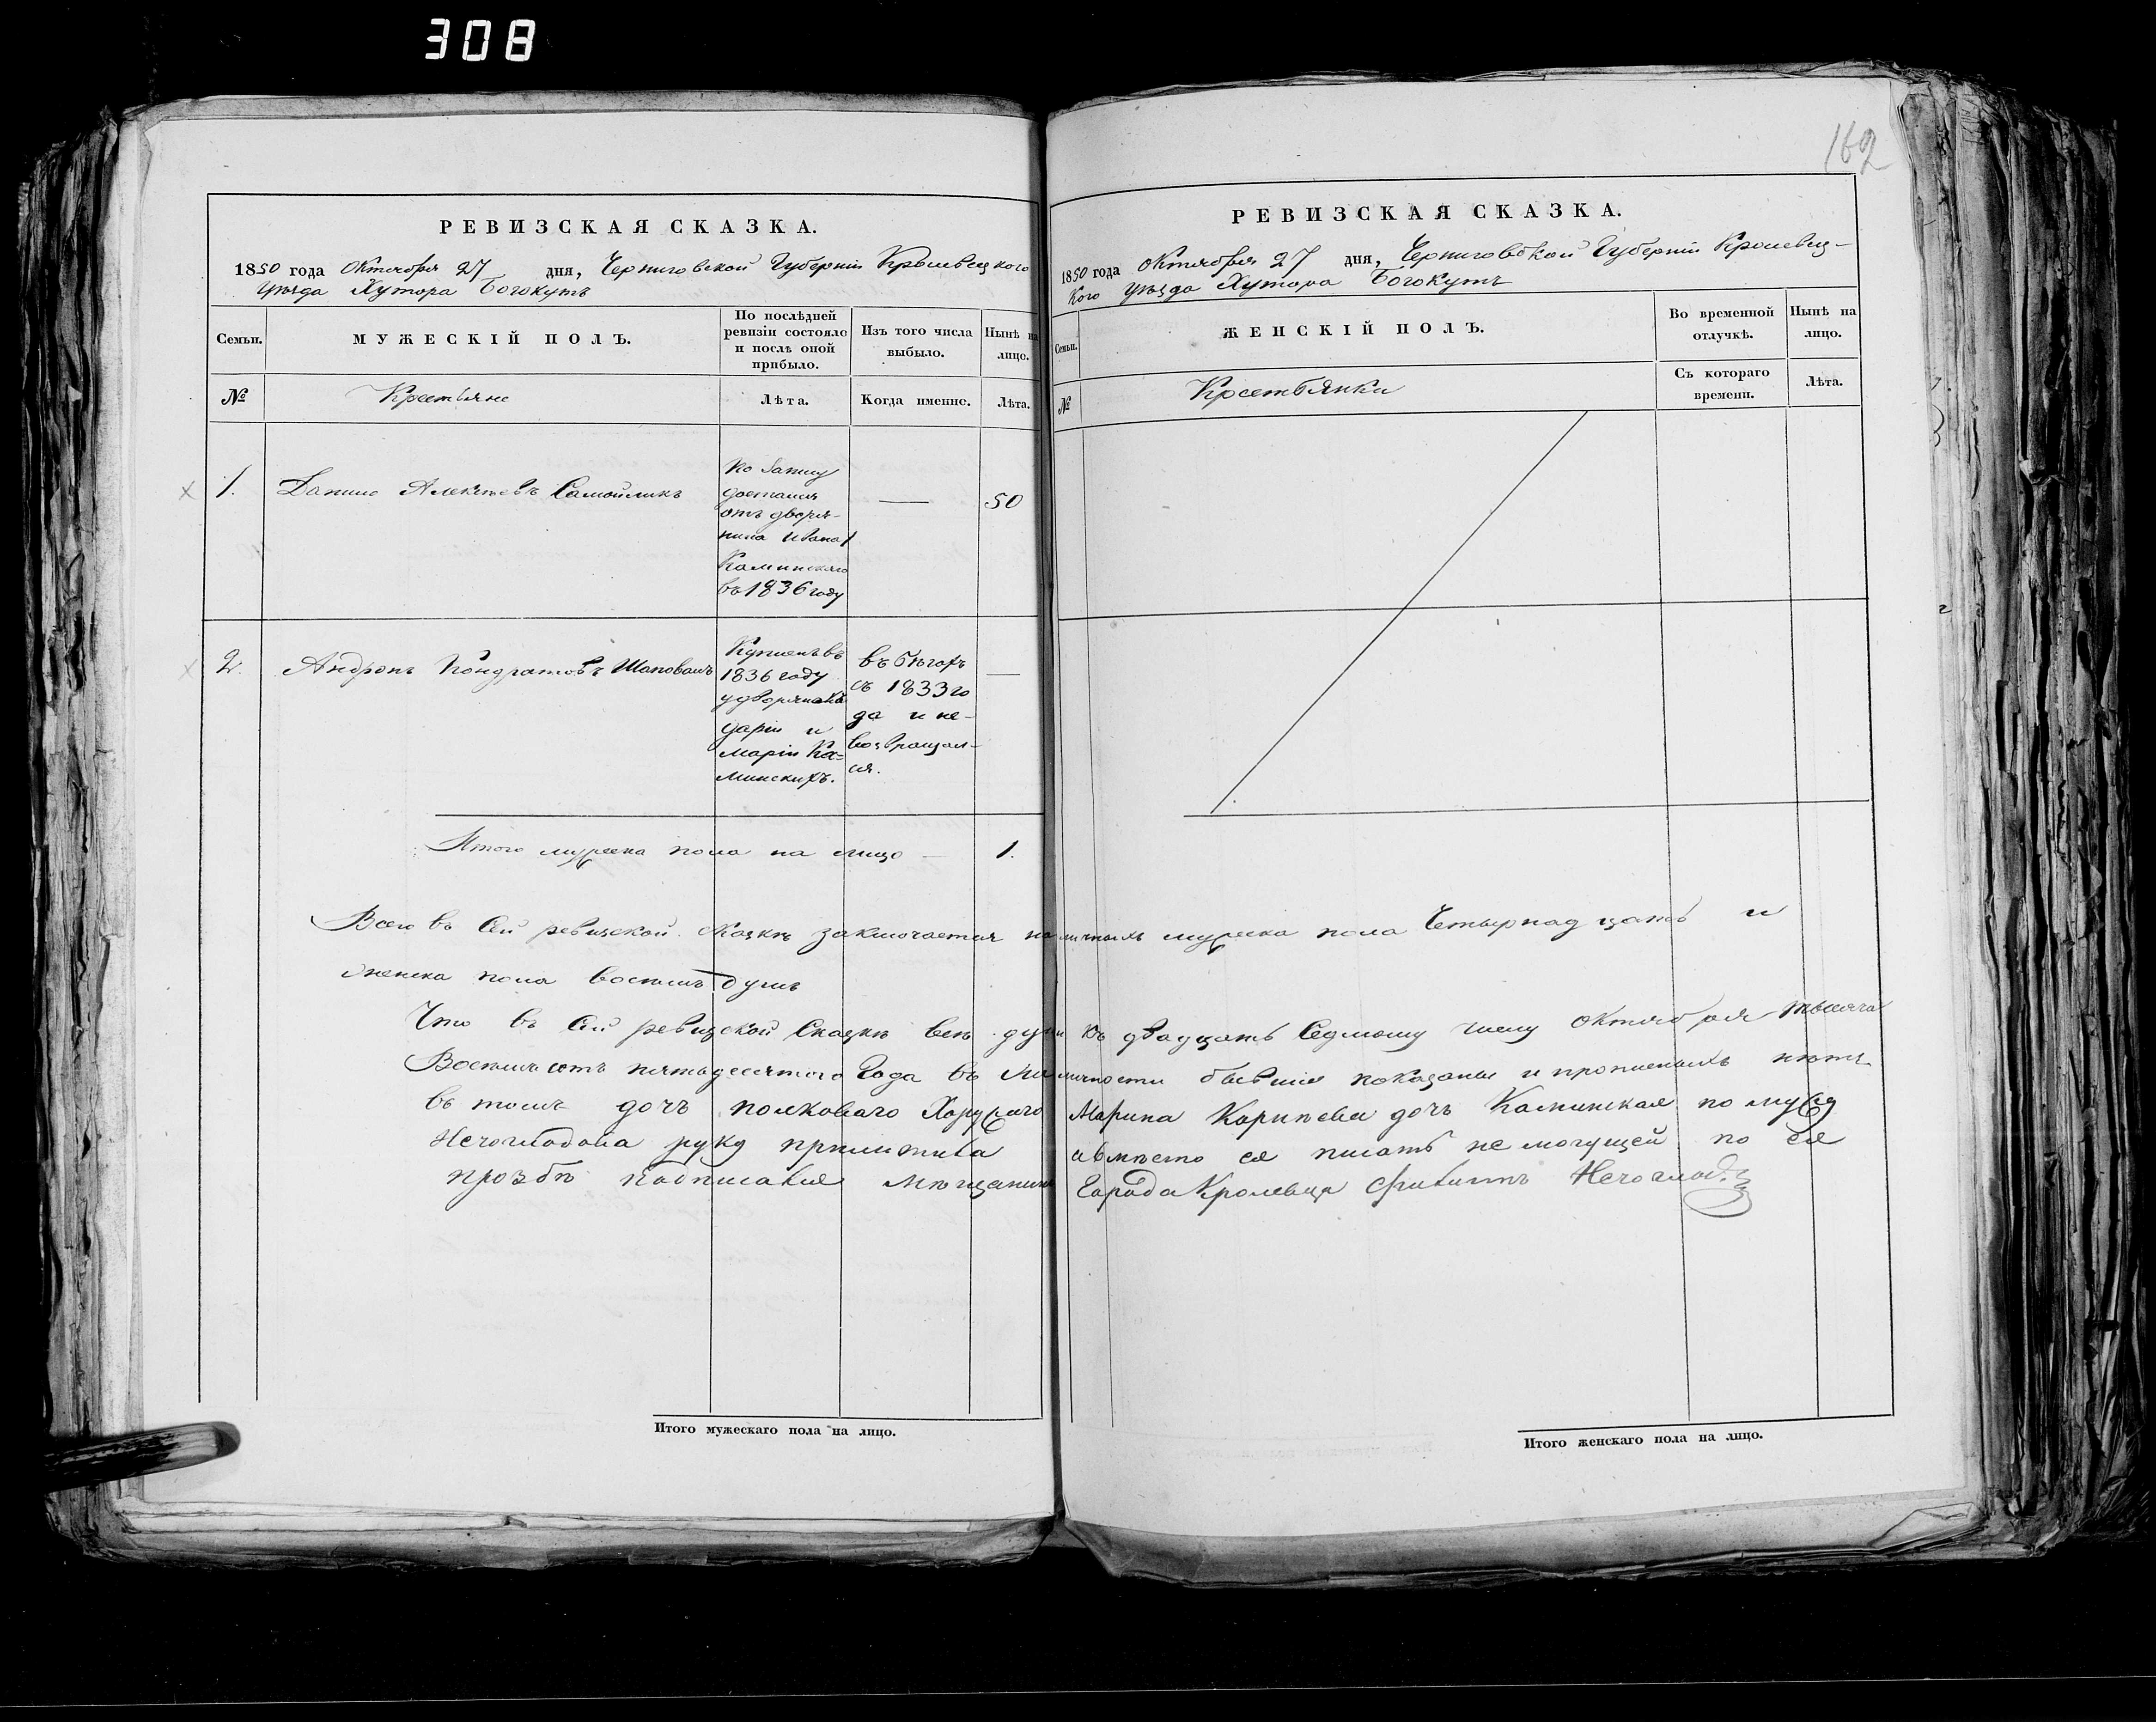 308
162
РЕВИЗСКАЯ СКАЗКА.
1850 года Октября 27 дня, Черниговской Губерніи Кролевецкого
уѣзда Хутора Богокутъ
Семьи.
МУЖЕСКІЙ ПОЛЪ.
По послѣдней
ревизіи состояло
и послѣ оной
прибыло.
Изъ того числа
выбыло.
Нынѣ на
лицо.
№
Крестьяне
Лѣта.
Когда именно.
Лѣта.
1.
Данило Алексѣевъ Самойликъ
по
достался
отъ дворя-
нина Ивана
Каминскаго
въ 1836 году
—
50
2.
Андронъ Кондратовъ Шаповалъ
Купленъ въ
1836 году
у дворянокъ
Даріи и
Маріи Ка-
минскихъ.
въ бѣгахъ
съ 1833 го
да и не-
возвращал-
ся.
—
Итого мужеска пола на лицо — 1.
РЕВИЗСКАЯ СКАЗКА.
1850 года Октября 27 дня, Черниговской Губерніи Кролевец-
кого уѣзда Хутора Богокутъ
Семьи.
ЖЕНСКІЙ ПОЛЪ.
Во временной
отлучкѣ.
Нынѣ на
лицо.
№
Крестьянки
Съ котораго
времени.
Лѣта.
Всего въ сей ревизской сказкѣ заключается наличныхъ мужеска пола четырнадцать и
женска пола восемь душъ
Что въ сей ревизской сказкѣ всѣ души къ двадцать седмому числу октября тысяча
восемьсотъ пятьдесятого года въ наличности бывшие показаны и прописныхъ нѣтъ
въ томъ дочъ полковаго Хоружаго Марина Карпѣева дочъ Каминская по мужу
Нечоглодова руку приложила авмѣсто ея писать не могущей по ея
прозбѣ подписался мѣщанинъ Города Кролевца Филиппъ
Итого мужескаго пола на лицо.
Итого женскаго пола на лицо.